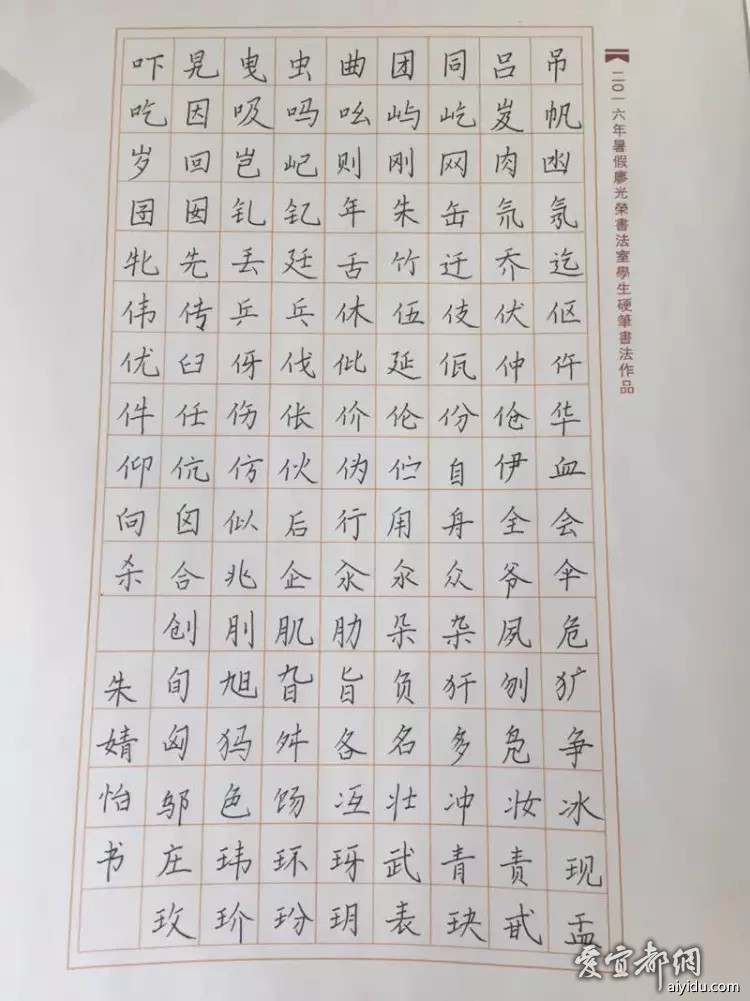 二〇一六年暑假廖光榮書法室學生硬筆書法作品
吓晃曳虫曲团同吕吊
吃因吸吗吆屿屹岌帆
岁回岂屺则刚网肉凼
囝囡钆钇年朱缶氘氖
牝先丢廷舌竹迁乔迄
伟传乒乓休伍伎伏伛
优臼伢伐仳延佤仲仵
件任伤伥价伦份伧华
仰伉仿伙伪伫自伊血
向囟似后行甪舟全会
杀合兆企汆氽众爷伞
创刖肌肋朵杂夙危
旬旭旮旨负犴刎犷
匈犸舛各名多凫争
邬色饧冱壮冲妆冰
庄玮环玡武青责现
玫玠玢玥表玦甙盂
朱婧怡书
爱宜都網
aiyidu.com